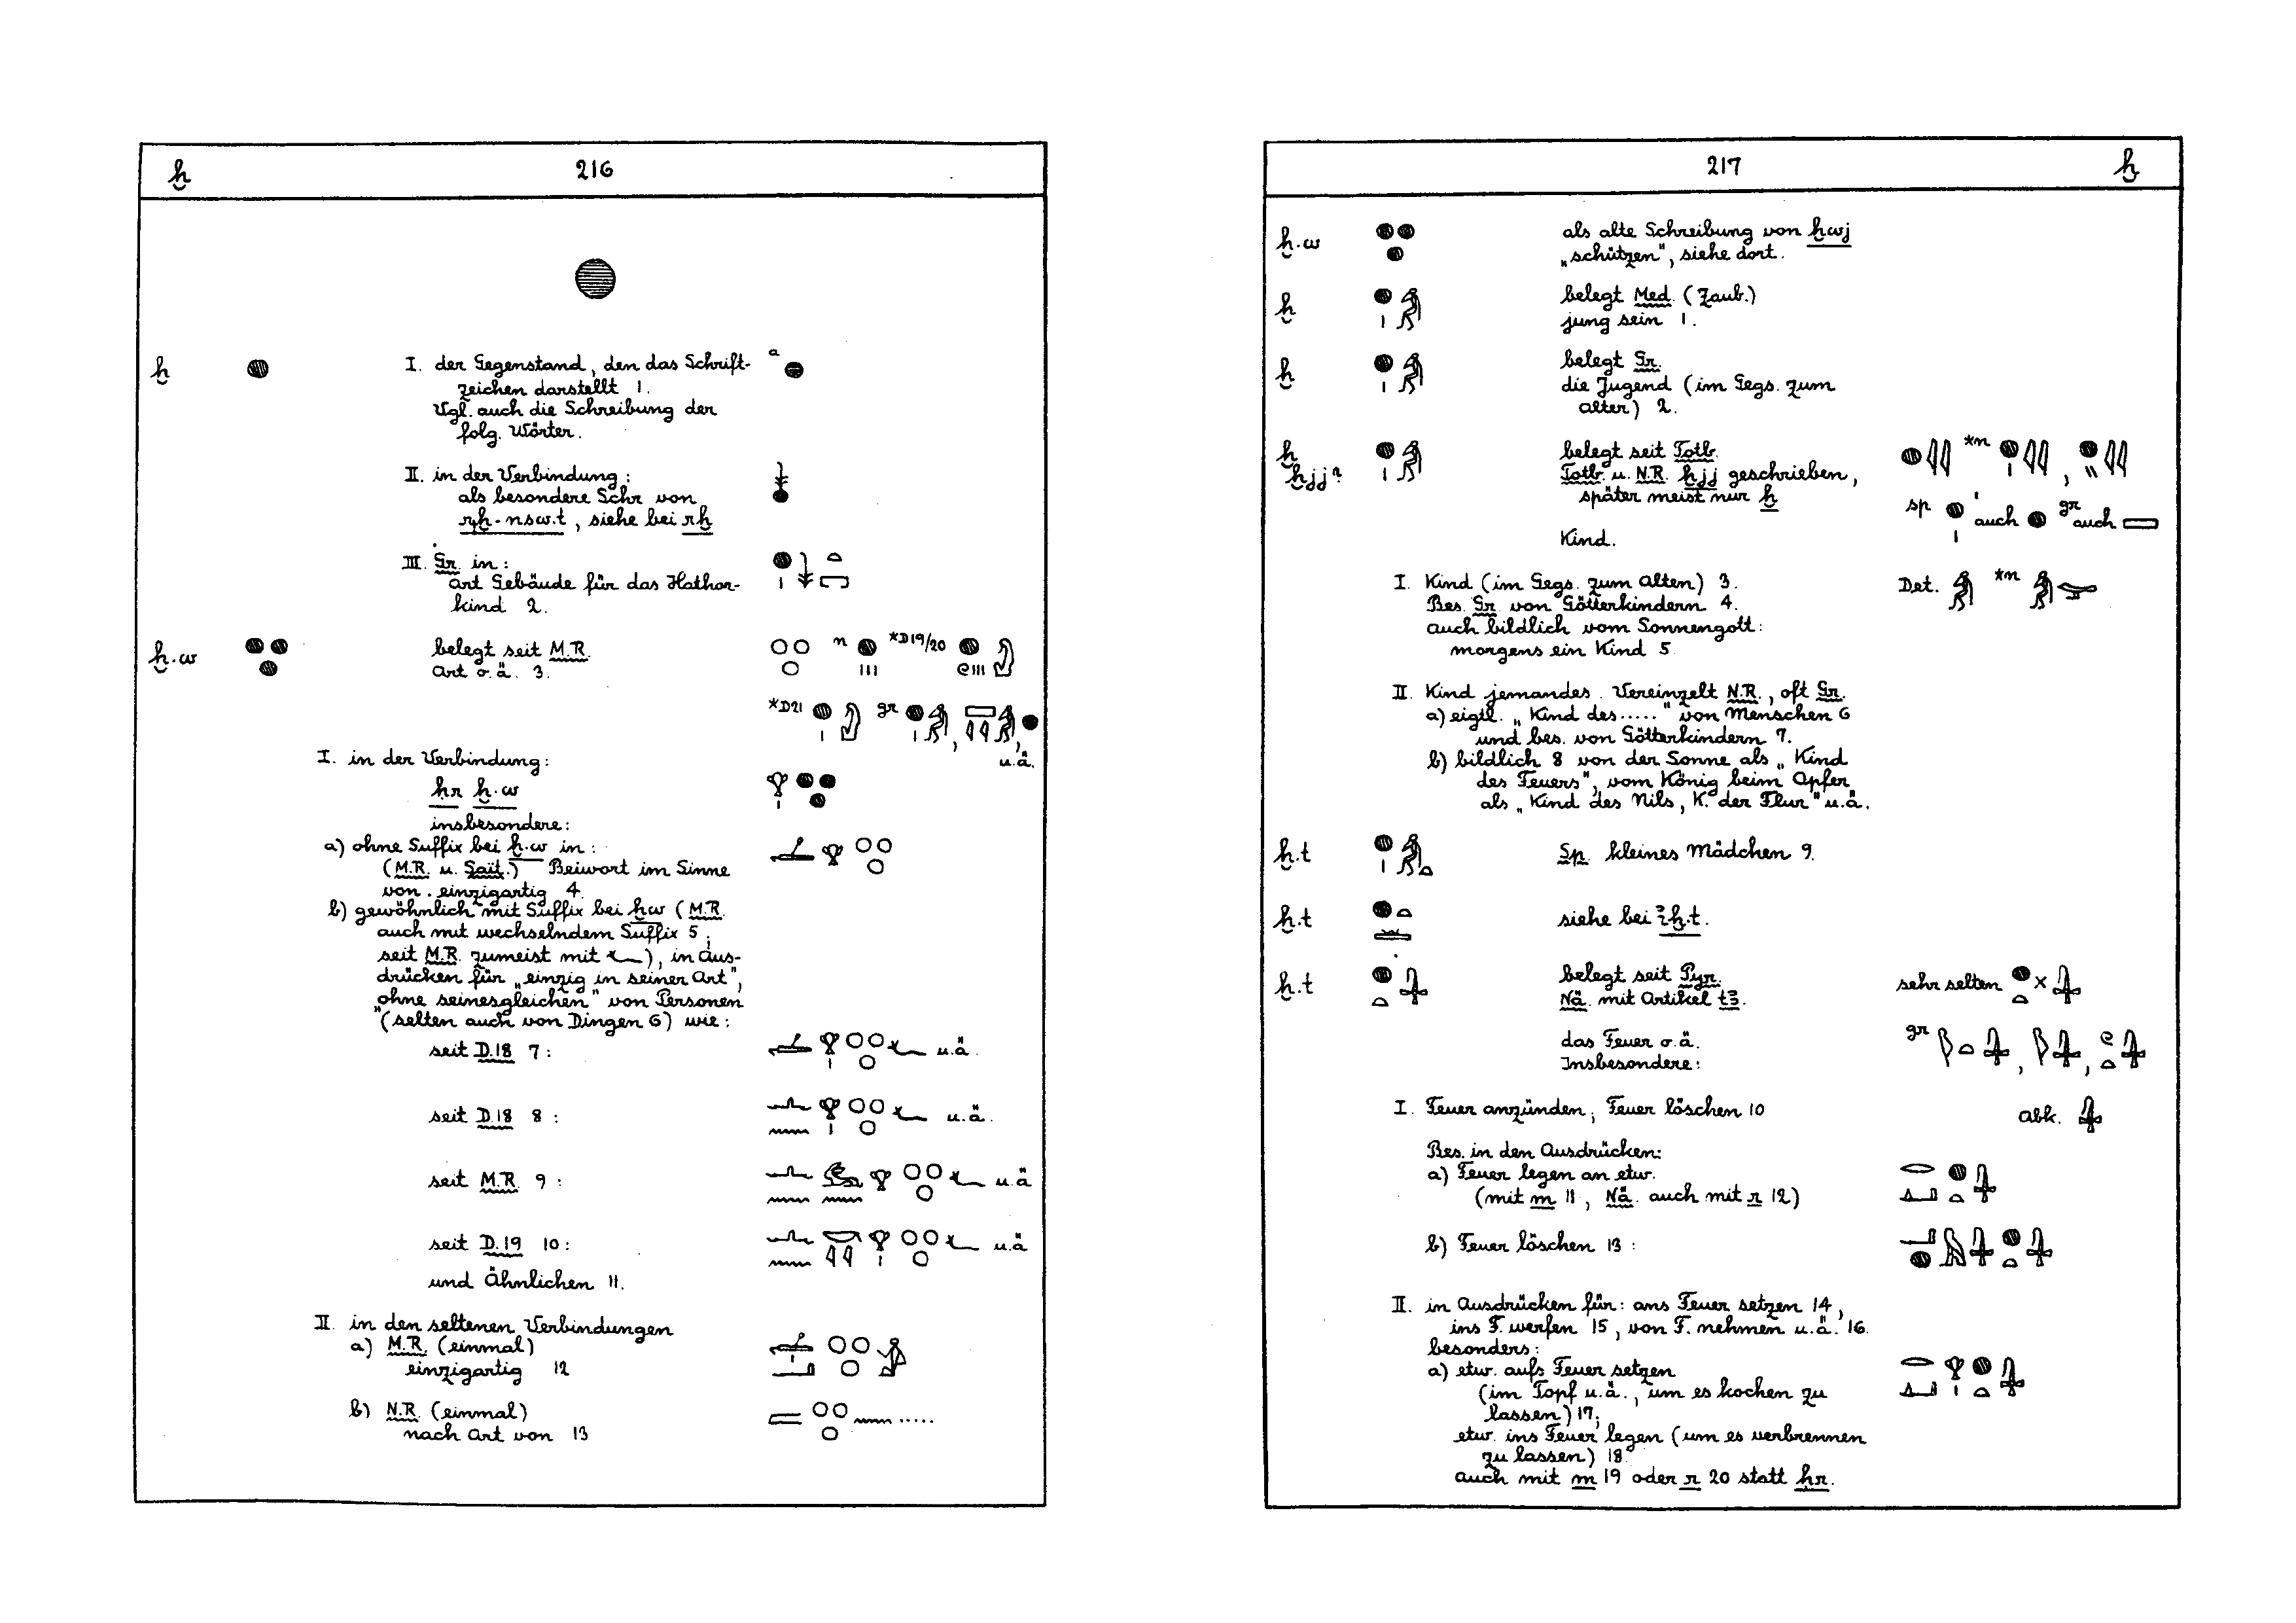 ḫ 216
ḫ I. der Gegenstand, den das Schrift- a
zeichen darstellt 1.
Vgl. auch die Schreibung der
folg. Wörter.
II. in der Verbindung:
als besondere Schr von
rḫ-nsw.t, siehe bei rḫ
III. Gr. in:
Art Gebäude für das Hathor-
kind 2.
ḫ.w belegt seit M.R. n *D19/20
Art o.ä. 3.
*D21 gr , ,
u.ä.
I. in der Verbindung:
ḥr ḫ.w
insbesondere:
a) ohne Suffix bei ḫ.w in:
(M.R. u. Sait.) Beiwort im Sinne
von: einzigartig 4.
b) gewöhnlich mit Suffix bei ḫw (M.R.
auch mit wechselndem Suffix 5;
seit M.R. zumeist mit 𓆑), in Aus-
drücken für „einzig in seiner Art",
„ohne seinesgleichen" von Personen
(selten auch von Dingen 6) wie:
seit D.18 7: u.ä.
seit D.18 8: u.ä.
seit M.R. 9: u.ä
seit D.19 10: u.ä
und Ähnlichen 11.
II. in den seltenen Verbindungen
a) M.R. (einmal)
einzigartig 12
b) N.R. (einmal) .....
nach Art von 13
217 ḫ
ḫ.w als alte Schreibung von ḫwj
„schützen", siehe dort.
ḫ belegt Med. (Zaub.)
jung sein 1.
ḫ belegt Gr.
die Jugend (im Gegs. zum
Alter) 2.
ḫ belegt seit Totb. *n ,
ḫjj? Totb. u. N.R. ḫjj geschrieben,
später meist nur ḫ sp auch gr auch
Kind.
I. Kind (im Gegs. zum Alten) 3. Det. *n
Bes. Gr. von Götterkindern 4.
auch bildlich vom Sonnengott:
morgens ein Kind 5.
II. Kind jemandes. Vereinzelt N.R., oft Gr.
a) eigtl. „Kind des....." von Menschen 6
und bes. von Götterkindern 7.
b) bildlich 8 von der Sonne als „Kind
des Feuers", vom König beim Opfer
als „Kind des Nils, K. der Flur" u.ä.
ḫ.t Sp. kleines Mädchen 9.
ḫ.t siehe bei iḫ.t.
ḫ.t belegt seit Pyr. sehr selten
Nä. mit Artikel tꜣ.
das Feuer o.ä. gr , ,
Insbesondere:
I. Feuer anzünden, Feuer löschen 10 Abk.
Bes. in den Ausdrücken:
a) Feuer legen an etw.
(mit m 11, Nä. auch mit r 12)
b) Feuer löschen 13:
II. in Ausdrücken für: ans Feuer setzen 14,
ins F. werfen 15, von F. nehmen u.ä. 16.
besonders:
a) etw. aufs Feuer setzen
(im Topf u.ä., um es kochen zu
lassen) 17;
etw. ins Feuer legen (um es verbrennen
zu lassen) 18.
auch mit m 19 oder r 20 statt ḥr.